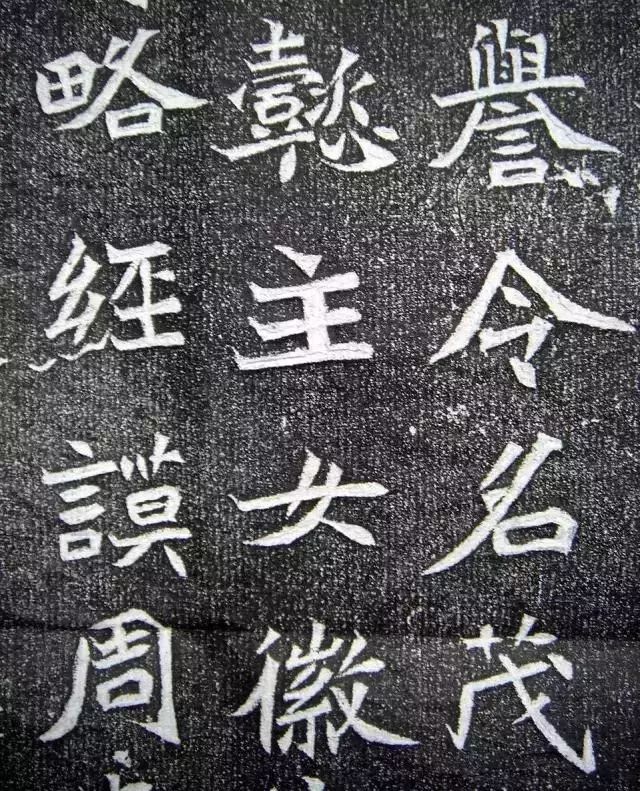 譽令名茂
懿主女徽
略經謨周